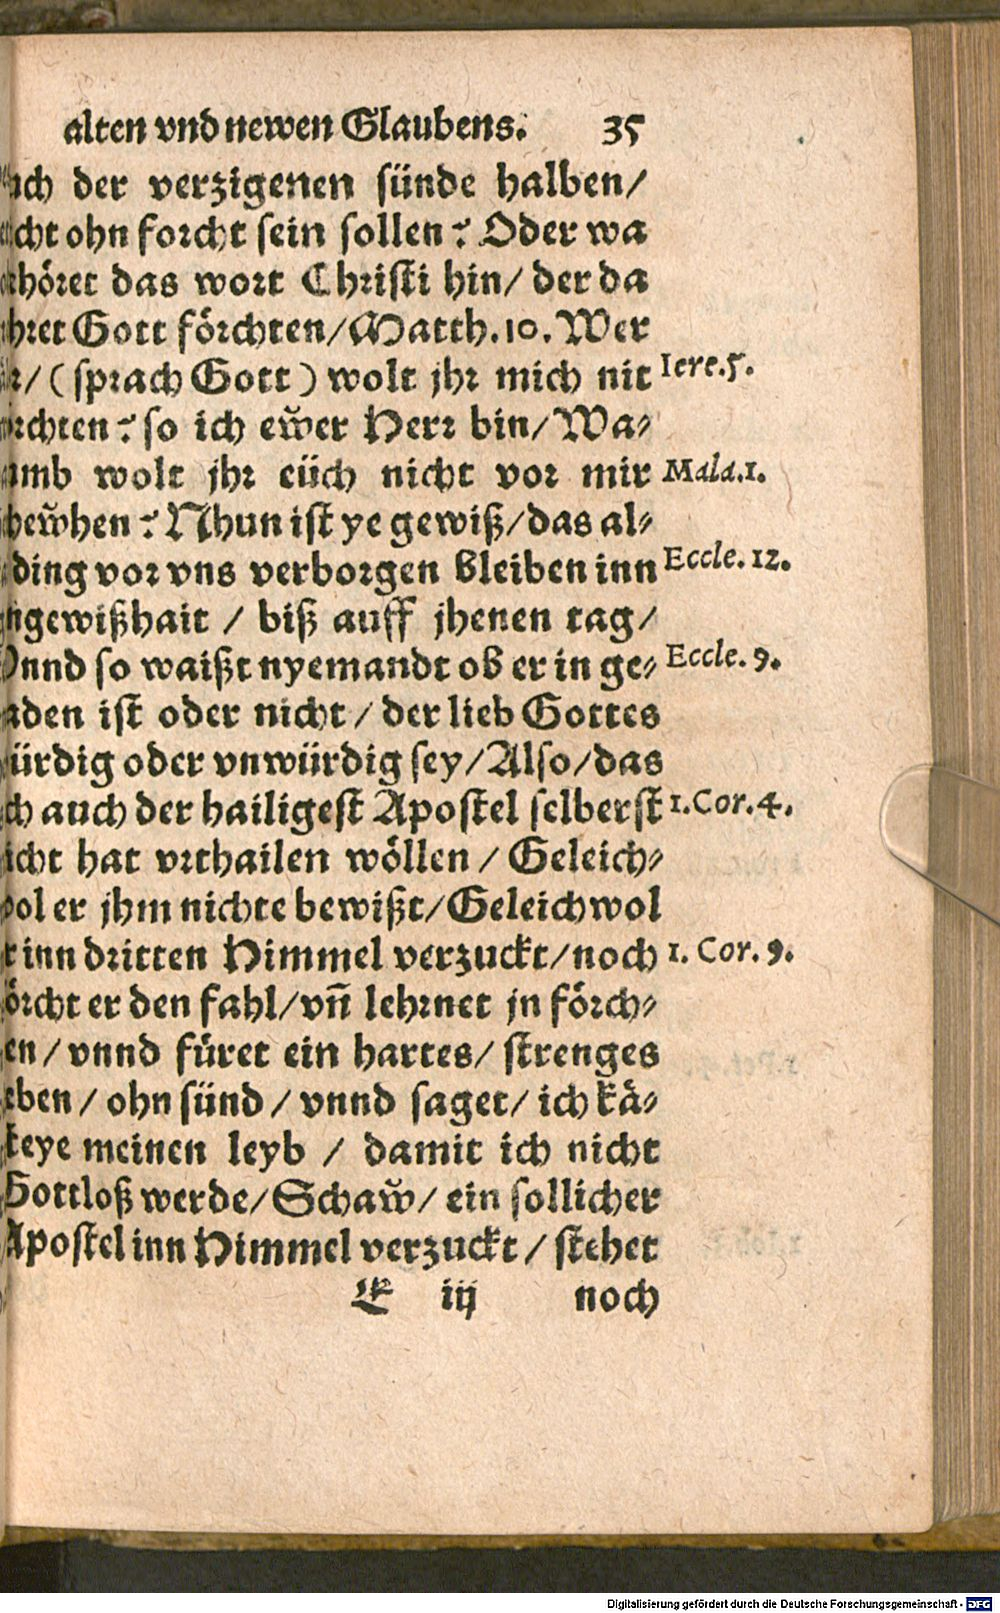 alten vnd newen Glaubens. 35
ach der verzigenen sünde halben/
cht ohn forcht sein sollen? Oder wa
höret das wort Christi hin/ der da
hret Gott förchten/ Matth. 10. Wer
r/ (sprach Gott) wolt jhr mich nit
Iere. 5.
rchten? so ich ewer Herr bin/ Wa-
umb wolt jhr eüch nicht vor mir
Mala. 1.
hewhen? Nhun ist ye gewiß/ das al-
ding vor vns verborgen bleiben inn
Eccle. 12.
ngewißhait / biß auff jhenen tag/
Vnnd so waißt nyemandt ob er in ge-
Eccle. 9.
aden ist oder nicht / der lieb Gottes
ürdig oder vnwürdig sey/ Also/ das
ch auch der hailigest Apostel selberst
1. Cor. 4.
icht hat vrthailen wöllen / Geleich-
wol er jhm nichte bewißt/ Geleichwol
r inn dritten Himmel verzuckt/ noch
1. Cor. 9.
örcht er den fahl/ vñ lehrnet jn förch-
en / vnnd füret ein hartes/ strenges
eben / ohn sünd / vnnd saget/ ich kä-
keye meinen leyb / damit ich nicht
Gottloß werde/ Schaw/ ein sollicher
Apostel inn Himmel verzuckt / stehet
E iij noch
Digitalisierung gefördert durch die Deutsche Forschungsgemeinschaft - DFG